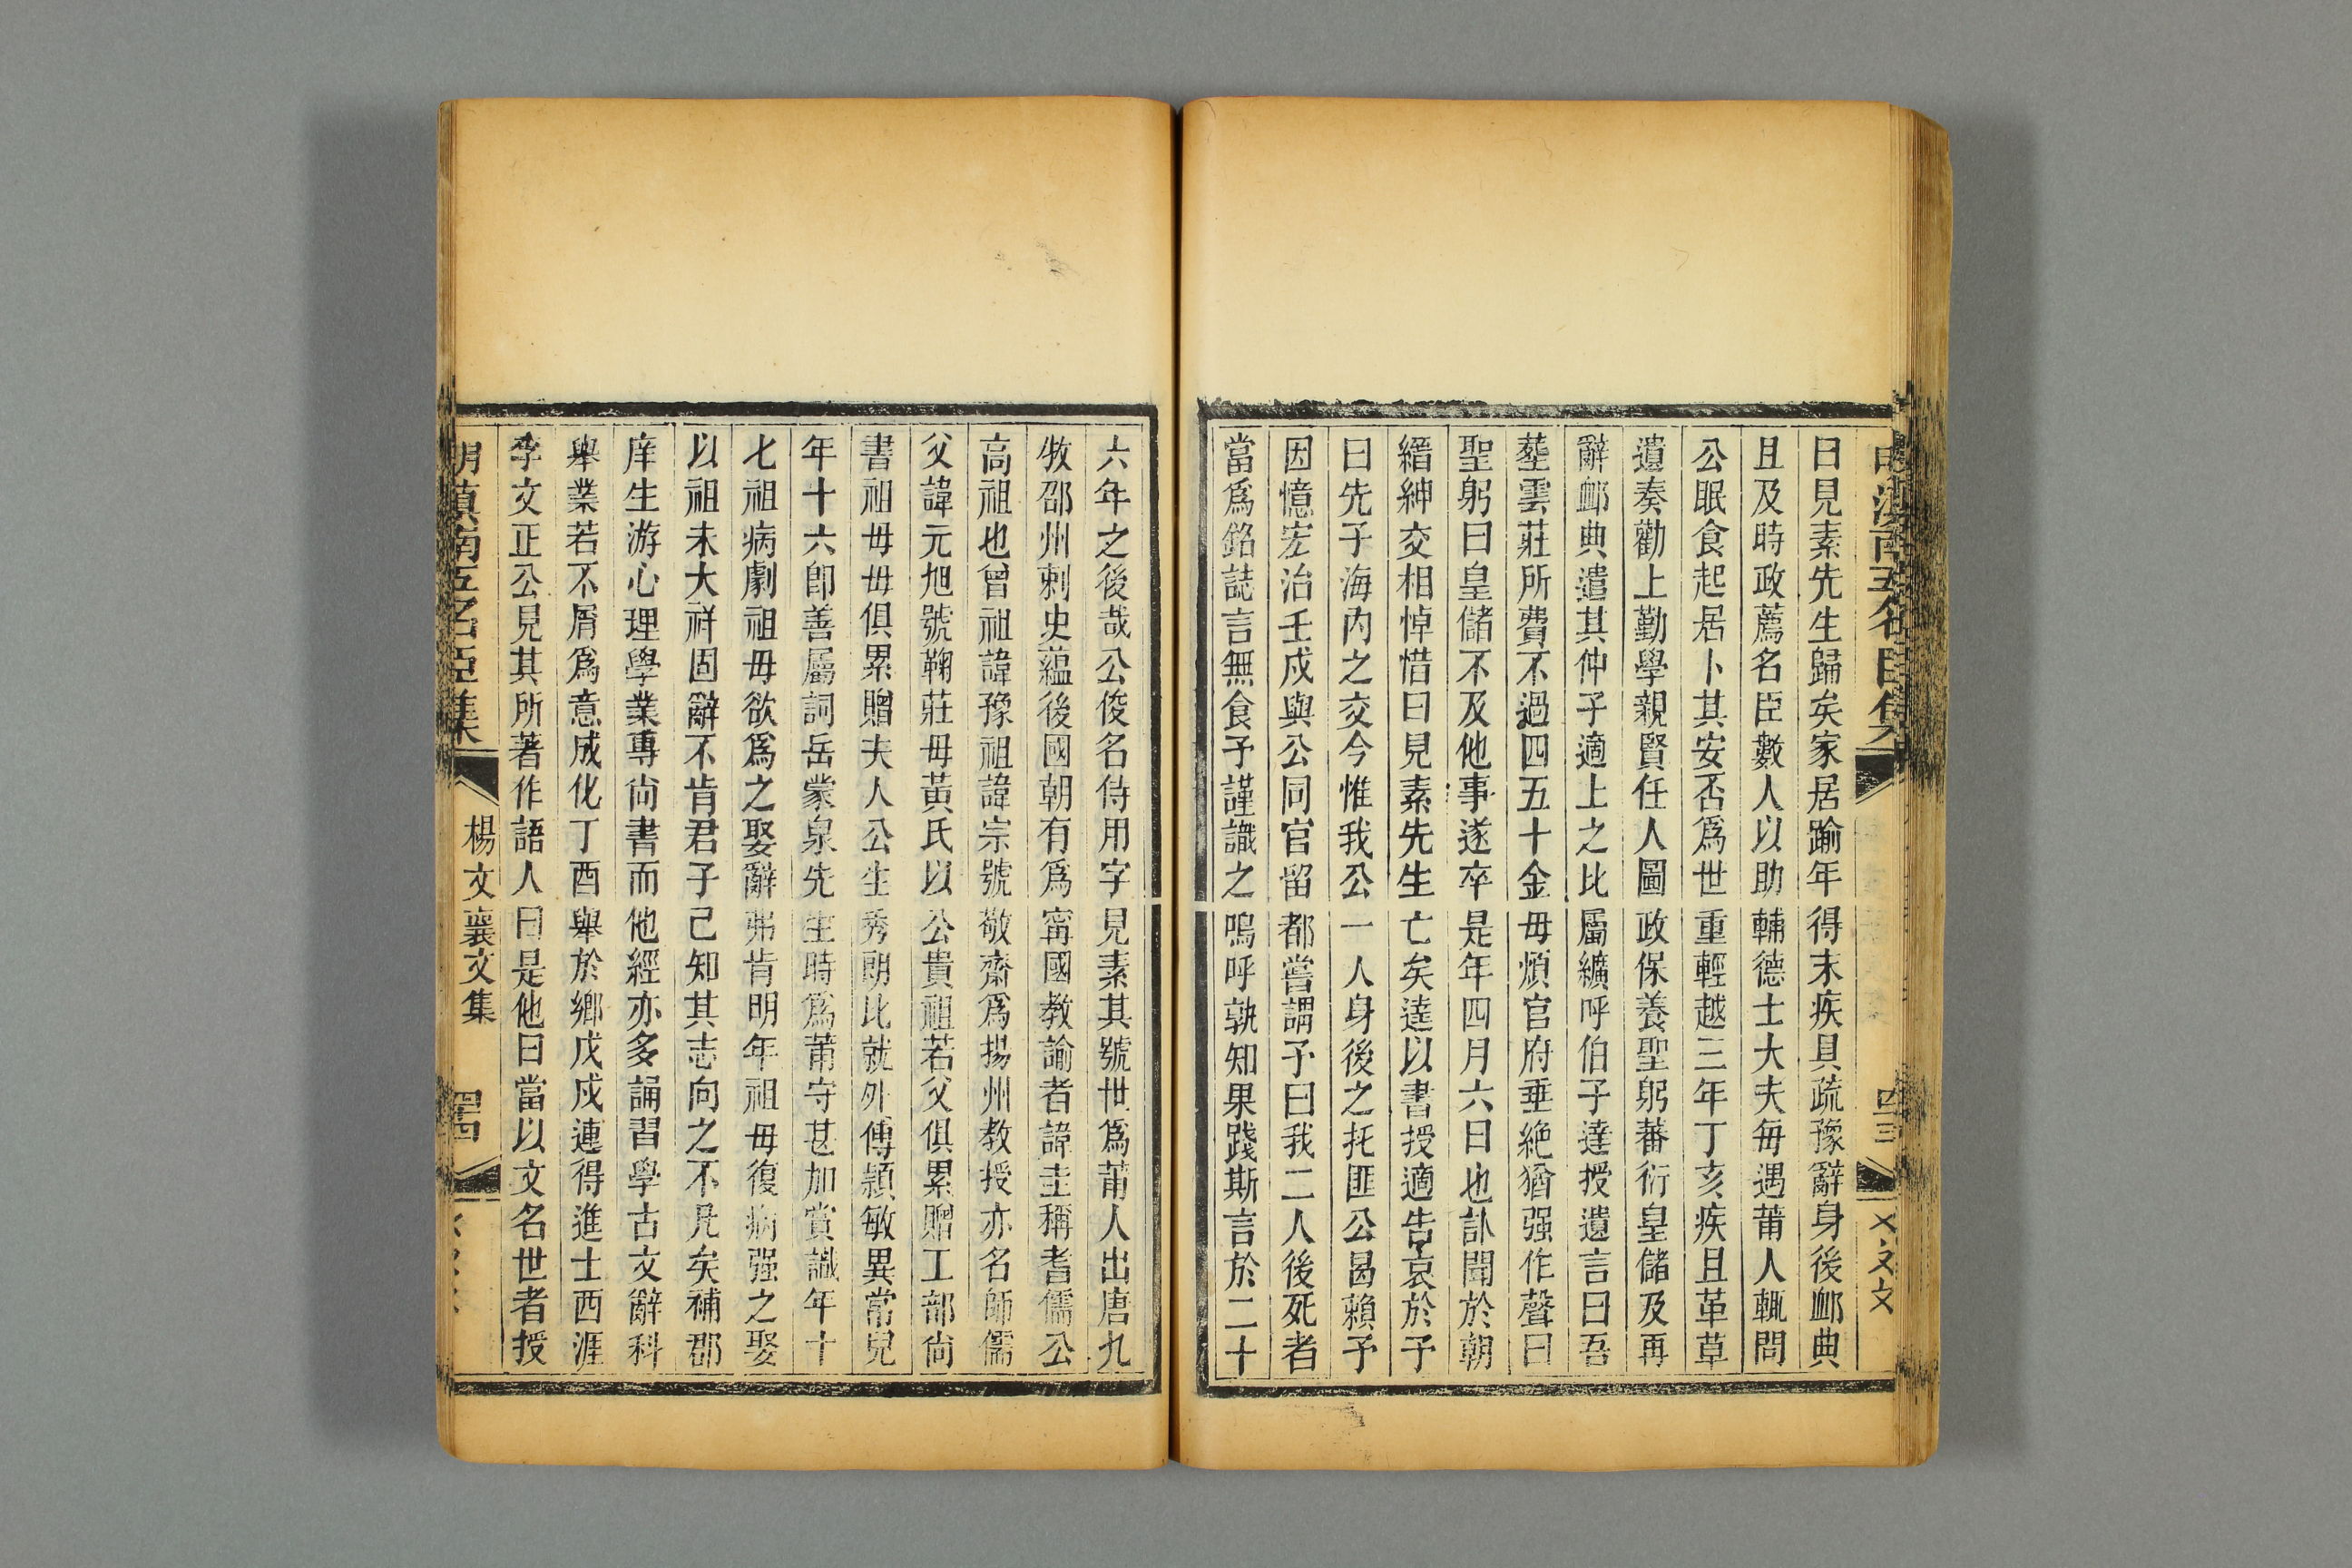 日見素先生歸矣家居踰年得末疾具疏豫辭身後䘏典
且及時政薦名臣數人以助輔德士大夫每遇莆人輒問
公眠食起居卜其安否爲世重輕越三年丁亥疾且革草
遺奏勸上勤學親賢任人圖政保養聖躬蕃衍皇儲及再
辭䘏典遣其仲子適上之比屬纊呼伯子達授遺言曰吾
塟雲莊所費不過四五十金毋煩官府垂絶猶强作聲曰
聖躬曰皇儲不及他事遂卒是年四月六日也訃聞於朝
縉紳交相悼惜曰見素先生亡矣達以書授適告哀於予
曰先子海內之交今惟我公一人身後之托匪公曷賴予
因憶宏治壬戍與公同官留都嘗謂予曰我二人後死者
當爲銘誌言無食予謹識之嗚呼孰知果踐斯言於二十
六年之後哉公俊名侍用字見素其號世爲莆人出唐九
牧邵州刺史蘊後國朝有爲甯國教諭者諱圭稱耆儒公
高祖也曾祖諱豫祖諱宗號敬齋爲揚州教授亦名師儒
父諱元旭號鞠莊母黃氏以公貴祖若父俱累贈工部尙
書祖母母俱累贈夫人公生秀朗比就外傅穎敏異常兒
年十六卽善屬詞岳蒙泉先生時爲莆守甚加賞識年十
七祖病劇祖母欲爲之娶辭弗肯明年祖母復病强之娶
以祖未大祥固辭不肯君子已知其志向之不凡矣補郡
庠生游心理學業專尙書而他經亦多誦習學古文辭科
舉業若不屑爲意成化丁酉舉於鄉戊戍連得進士西涯
李文正公見其所著作語人曰是他日當以文名世者授
明滇南五名臣集
楊文襄文集
四四